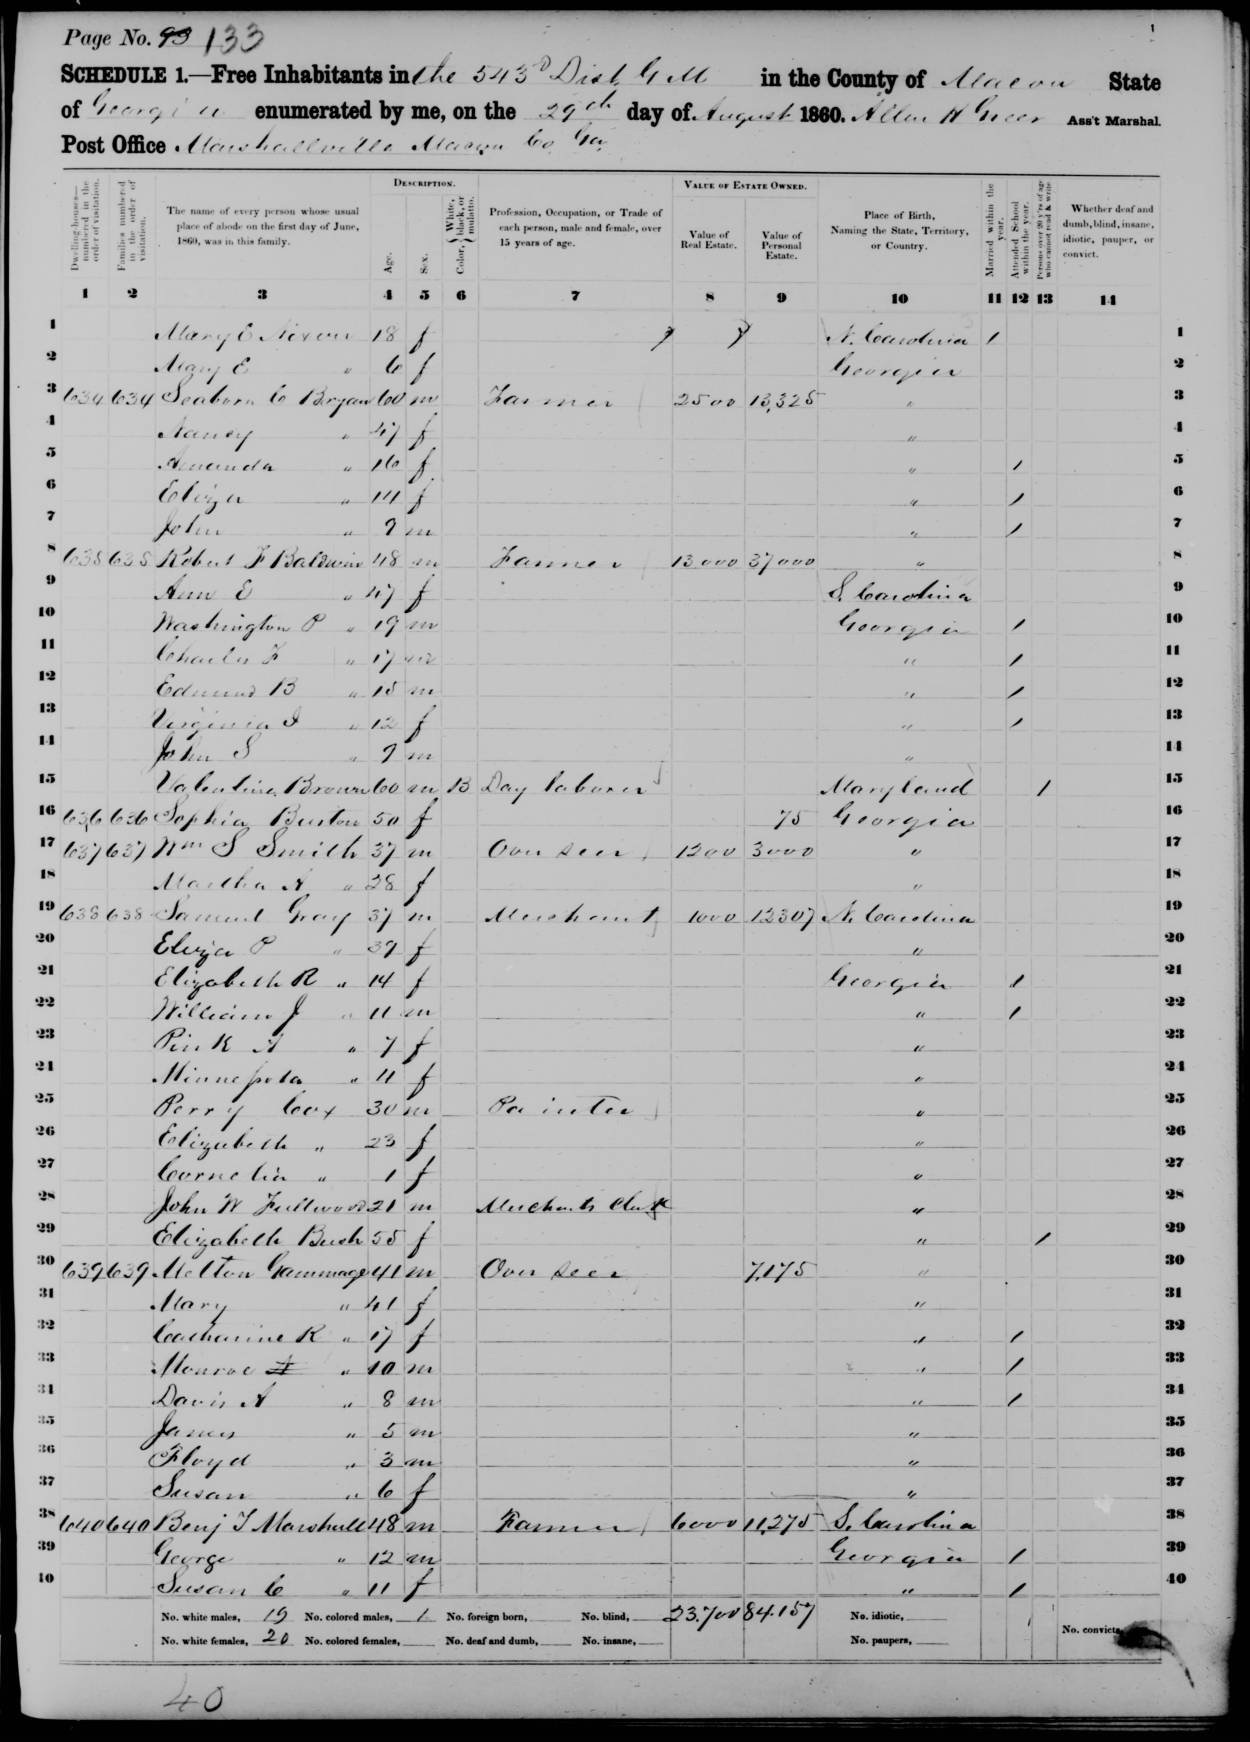 Page No. 93 133
SCHEDULE 1.—Free Inhabitants in the 543d Dist G M in the County of Macon State
of Georgia enumerated by me, on the 29th day of August 1860. Allen H Greer Ass't Marshal.
Post Office Marshallville Macon Co Ga,
Dwelling-houses—numbered in the order of visitation.
Families numbered in the order of visitation.
The name of every person whose usual place of abode on the first day of June, 1860, was in this family.
DESCRIPTION.
Age.
Sex.
Color, { White, black, or mulatto.
Profession, Occupation, or Trade of each person, male and female, over 15 years of age.
VALUE OF ESTATE OWNED.
Value of Real Estate.
Value of Personal Estate.
Place of Birth, Naming the State, Territory, or Country.
Married within the year.
Attended School within the year.
Persons over 20 y'rs of age who cannot read & write
Whether deaf and dumb, blind, insane, idiotic, pauper, or convict.
1 2 3 4 5 6 7 8 9 10 11 12 13 14
1 Mary E Nixon 18 f N. Carolina / 1
2 Mary E " 6 f Georgia 2
3 634 634 Seaborn C Bryan 60 m Farmer 2500 13,325 " 3
4 Nancy " 47 f " 4
5 Amanda " 16 f " / 5
6 Eliza " 14 f " / 6
7 John " 9 m " / 7
8 635 635 Robert F Baldwin 48 m Farmer 13000 37000 " 8
9 Ann E " 47 f S. Carolina 9
10 Washington P " 19 m Georgia / 10
11 Charles F " 17 m " / 11
12 Edmund B " 15 m " / 12
13 Virginia I " 12 f " / 13
14 John S " 9 m " 14
15 Valentine Brown 60 m B Day laborer Maryland / 15
16 636 636 Sophia Burton 50 f 75 Georgia 16
17 637 637 Wm S Smith 37 m Over seer 1200 3000 " 17
18 Martha A " 28 f " 18
19 638 638 Samuel Gray 37 m Merchant 1000 12307 N. Carolina 19
20 Eliza P " 39 f " 20
21 Elizabeth R " 14 f Georgia / 21
22 William J " 11 m " / 22
23 Pink A " 7 f " 23
24 Minnesota " 4 f " 24
25 Perry Cox 30 m Painter " 25
26 Elizabeth " 23 f " 26
27 Cornelia " 1 f " 27
28 John W Fullwood 21 m Merchants Clerk " 28
29 Elizabeth Bush 55 f " / 29
30 639 639 Melton Gammage 41 m Over seer 7,175 " 30
31 Mary " 41 f " 31
32 Catharine R " 17 f " / 32
33 Monroe A " 10 m " / 33
34 Davis A " 8 m " / 34
35 James " 5 m " 35
36 Floyd " 3 m " 36
37 Susan " 6 f " 37
38 640 640 Benj T Marshall 48 m Farmer 6000 11,275 S. Carolina 38
39 George " 12 m Georgia / 39
40 Susan C " 11 f " / 40
No. white males, 19 No. colored males, 1 No. foreign born, No. blind, 23.700 84.157 No. idiotic,
No. white females, 20 No. colored females, No. deaf and dumb, No. insane, No. paupers, No. convicts,
40